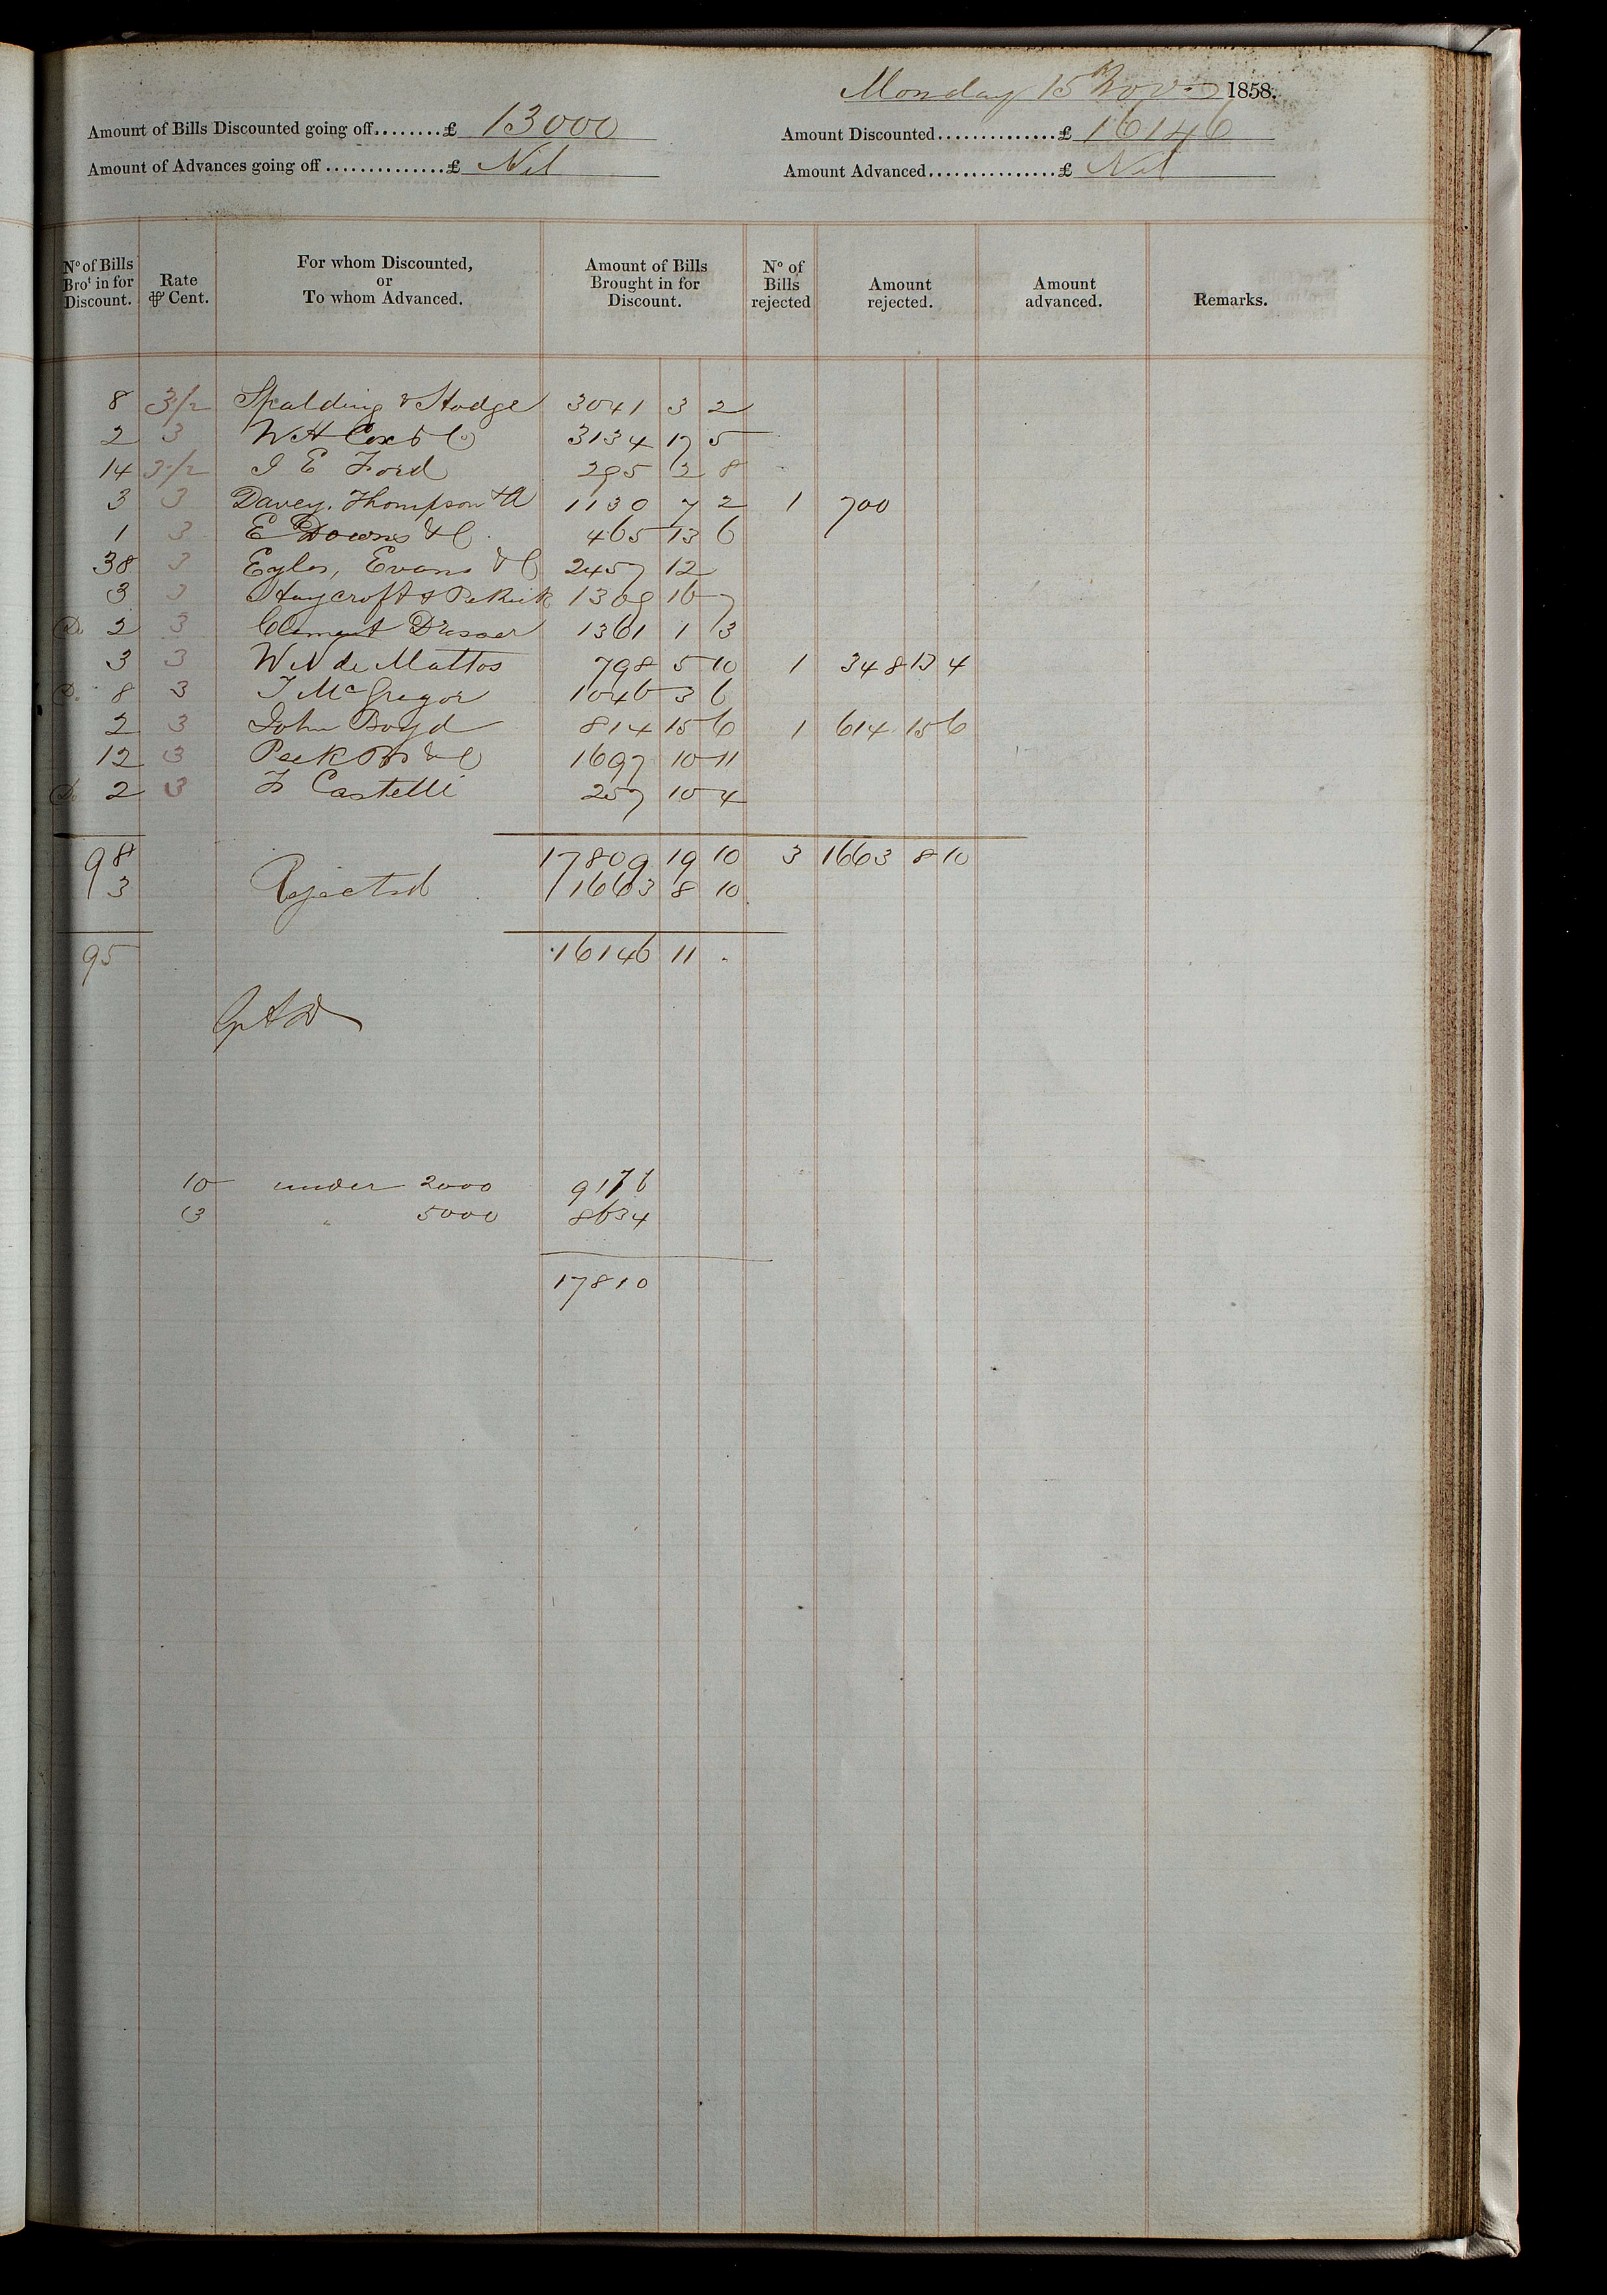 Monday 15 Nov 1858.
Amount of Bills Discounted going off........£ 13000 Amount Discounted..............£ 16146
Amount of Advances going off..............£ Nil Amount Advanced...............£ Nil
No of Bills Brot in for Discount. Rate ⅌ Cent. For whom Discounted, or To whom Advanced. Amount of Bills Brought in for Discount. No of Bills rejected Amount rejected. Amount advanced. Remarks.
8 3/2 Spalding & Hodge 3041 3 2
2 3 W H Cox & Co 3134 17 5
14 3/2 J E Ford 295 2 8
3 3 Davey, Thompson & Co 1130 7 2 1 700
1 3 E Downs & Co 465 13 6
38 3 Eyles, Evans & Co 2457 12
3 3 Haycroft & Pethick 1309 16 7
Do 2 3 Clement Dresser 1361 1 3
3 3 W N de Mattos 798 5 10 1 348 13 4
Do 8 3 J McGregor 1046 3 6
2 3 John Boyd 814 15 6 1 614 15 6
12 3 Peek Bros & Co 1697 10 11
Do 2 3 F Castelli 257 10 4
98 17809 19 10 3 1663 8 10
3 Rejected 1663 8 10
95 16146 11 -
10 under 2000 9176
3 " 5000 8634
17810